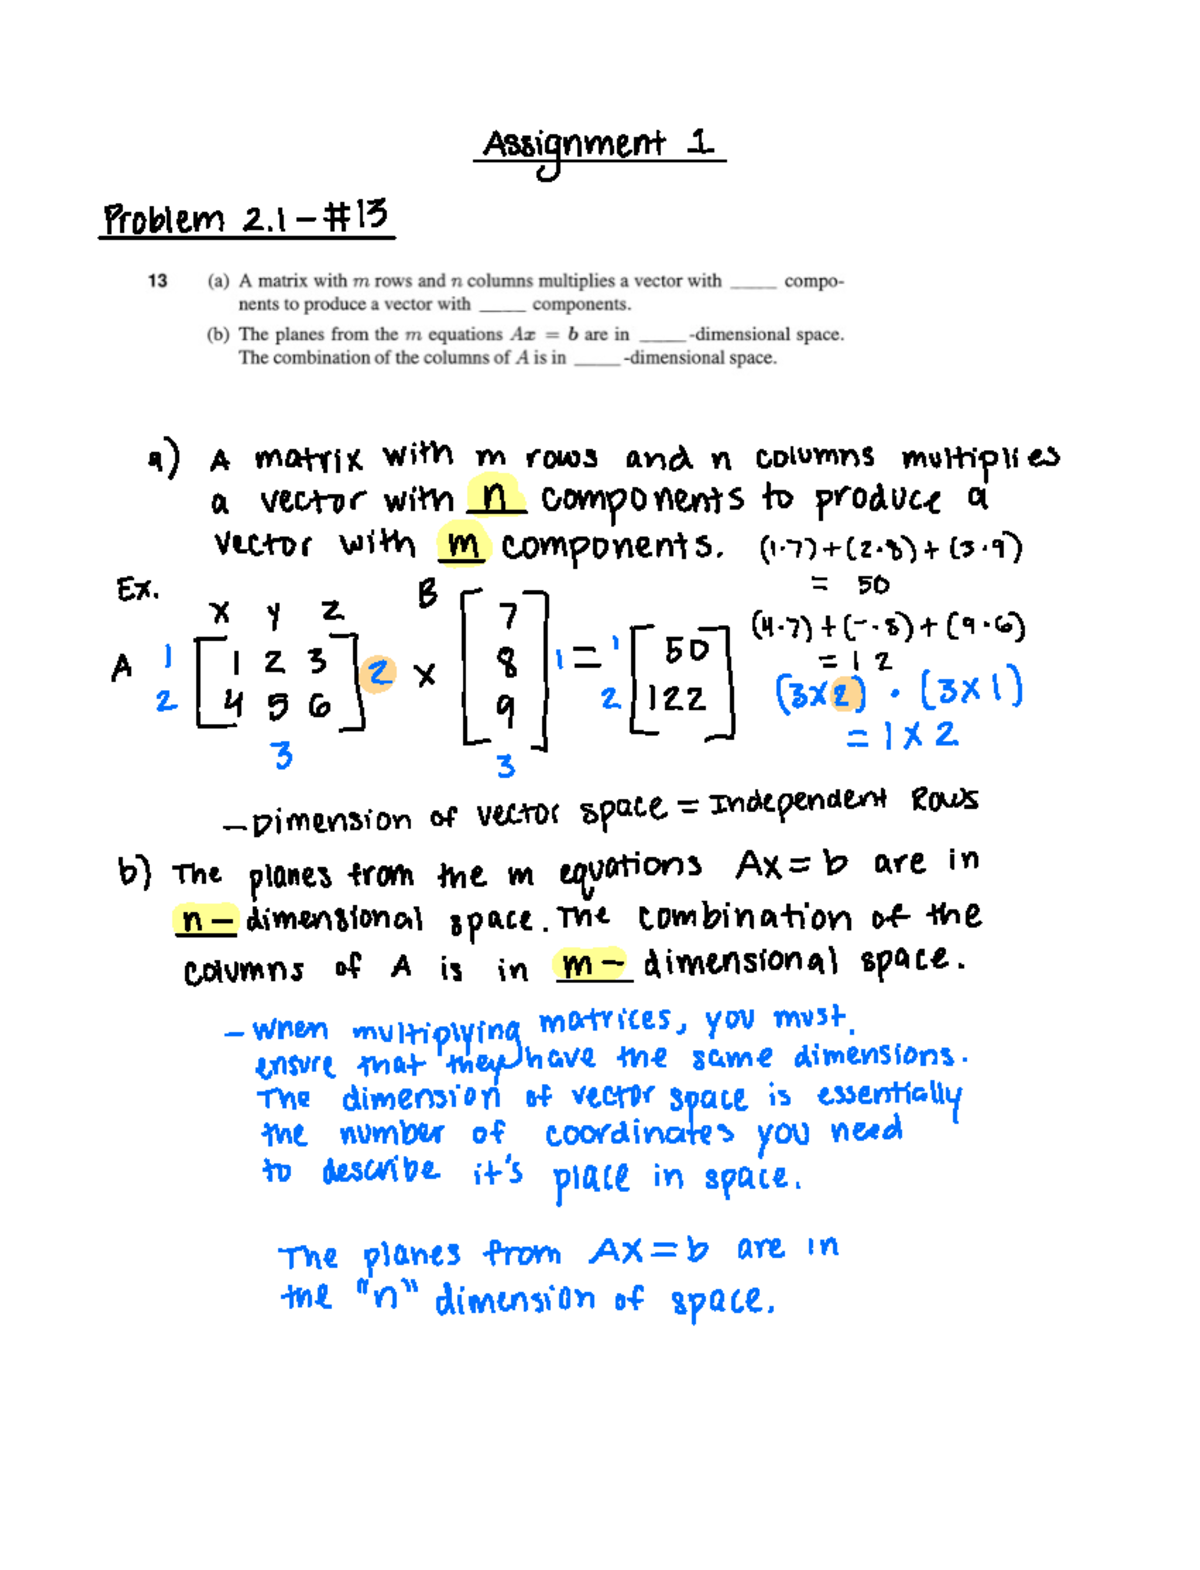 Assignment 1
Problem 2.1 - #13
13 (a) A matrix with m rows and n columns multiplies a vector with _____ compo-
nents to produce a vector with _____ components.
(b) The planes from the m equations Ax = b are in _____-dimensional space.
The combination of the columns of A is in _____-dimensional space.
a) A matrix with m rows and n columns multiplies
a vector with n components to produce a
vector with m components. (1·7)+(2·8)+(3·9)
= 50
Ex.
x y z B
(4·7)+(-·8)+(9·6)
= 1 2
A 1 [1 2 3 2 x [7 8 9] 1 = 1 [50
2 4 5 6] 2 122]
3 3
(3x2) · (3x1)
= 1x2
- Dimension of vector space = Independent Rows
b) The planes from the m equations Ax=b are in
n- dimensional space. The combination of the
columns of A is in m- dimensional space.
- When multiplying matrices, you must
ensure that they have the same dimensions.
The dimension of vector space is essentially
the number of coordinates you need
to describe it's place in space.
The planes from Ax=b are in
the "n" dimension of space.